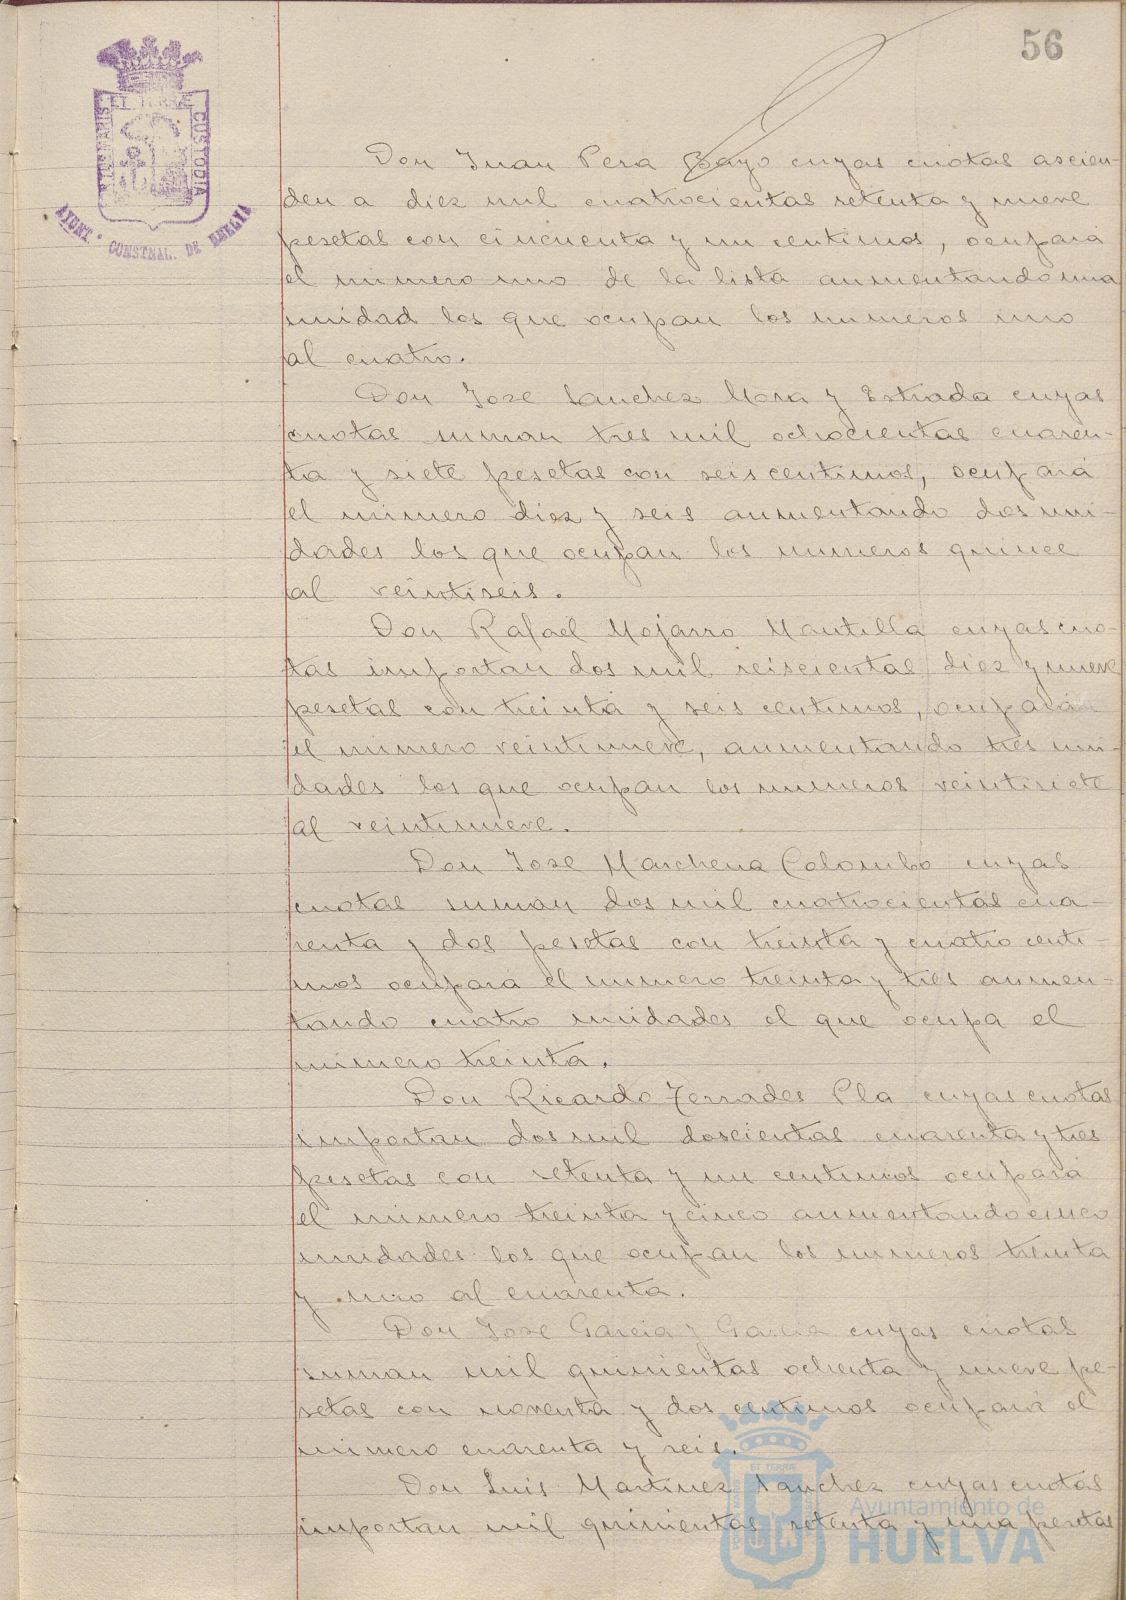 56
PORTUS MARIS ET TERRÆ CUSTODIA
AYUNT. CONSTNAL. DE HUELVA
Don Juan Pera Bayo cuyas cuotas ascien-
den a diez mil cuatrocientas setenta y nueve
pesetas con cincuenta y un centimos, ocupará
el número uno de la lista aumentando una
unidad los que ocupan los numeros uno
al cuatro.
Don Jose Sanchez Mora y Estrada cuyas
cuotas suman tres mil ochocientas cuaren-
ta y siete pesetas con seis centimos, ocupará
el número diez y seis aumentando dos uni-
dades los que ocupan los numeros quince
al veintiseis.
Don Rafael Mojarro Mantilla cuyas cuo-
tas importan dos mil seiscientas diez y nueve
pesetas con treinta y seis centimos, ocupará
el número veintinueve, aumentando tres uni-
dades los que ocupan los numeros veintisiete
al veintinueve.
Don Jose Marchena Colombo cuyas
cuotas suman dos mil cuatrocientas cua-
renta y dos pesetas con treinta y cuatro centi-
mos ocupará el numero treinta y tres aumen-
tando cuatro unidades el que ocupa el
número treinta.
Don Ricardo Terrades Pla cuyas cuotas
importan dos mil doscientas cuarenta y tres
pesetas con setenta y un centimos ocupará
el número treinta y cinco aumentando cinco
unidades los que ocupan los numeros treinta
y uno al cuarenta.
Don Jose Garcia y Garcia cuyas cuotas
suman mil quinientas ochenta y nueve pe-
setas con noventa y dos centimos ocupará el
número cuarenta y seis.
Don Luis Martinez Sanchez cuyas cuotas
importan mil quinientas setenta y una pesetas
Ayuntamiento de
HUELVA